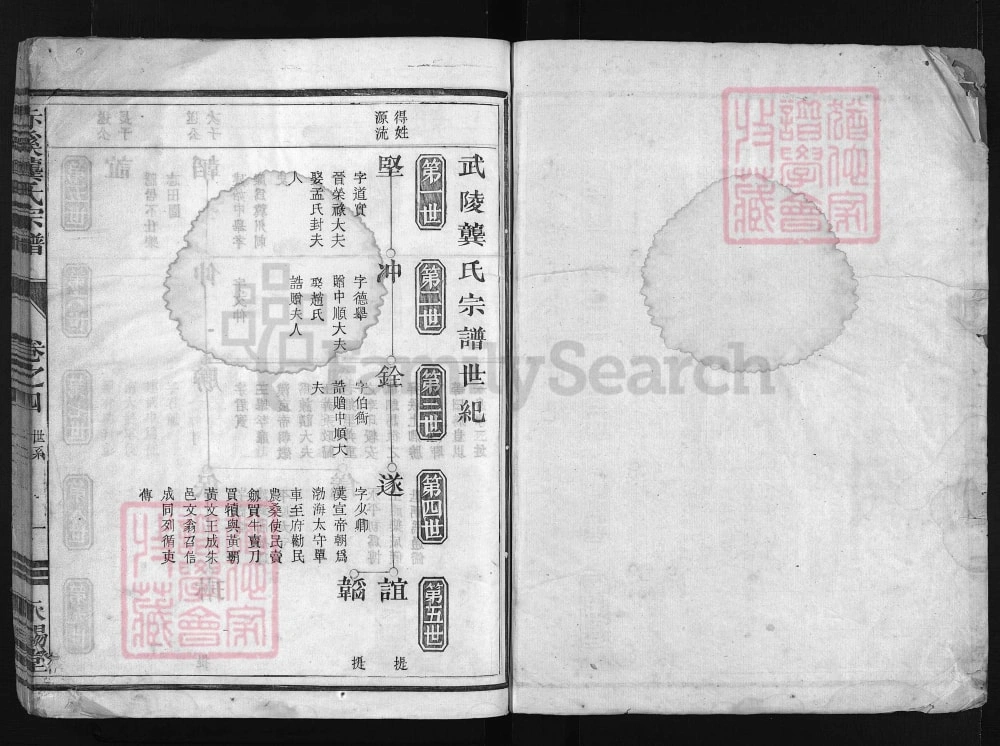 武陵龔氏宗譜世紀
得姓
源流
第一世
堅
字道實
晉榮祿大夫
娶孟氏封夫
人
第二世
冲
字德舉
贈中順大夫
娶趙氏
誥贈夫人
第三世
銓
字伯衡
誥贈中順大
夫
第四世
遂
字少卿
漢宣帝朝爲
渤海太守單
車至府勸民
農桑使民賣
劍買牛賣刀
買犢與黃霸
黃文王成朱
邑文翁召信
成同列循吏
傳
第五世
誼
提
韜
提
龔氏宗譜
卷之四
世系
一
永賜堂
譜學會
收藏
FamilySearch